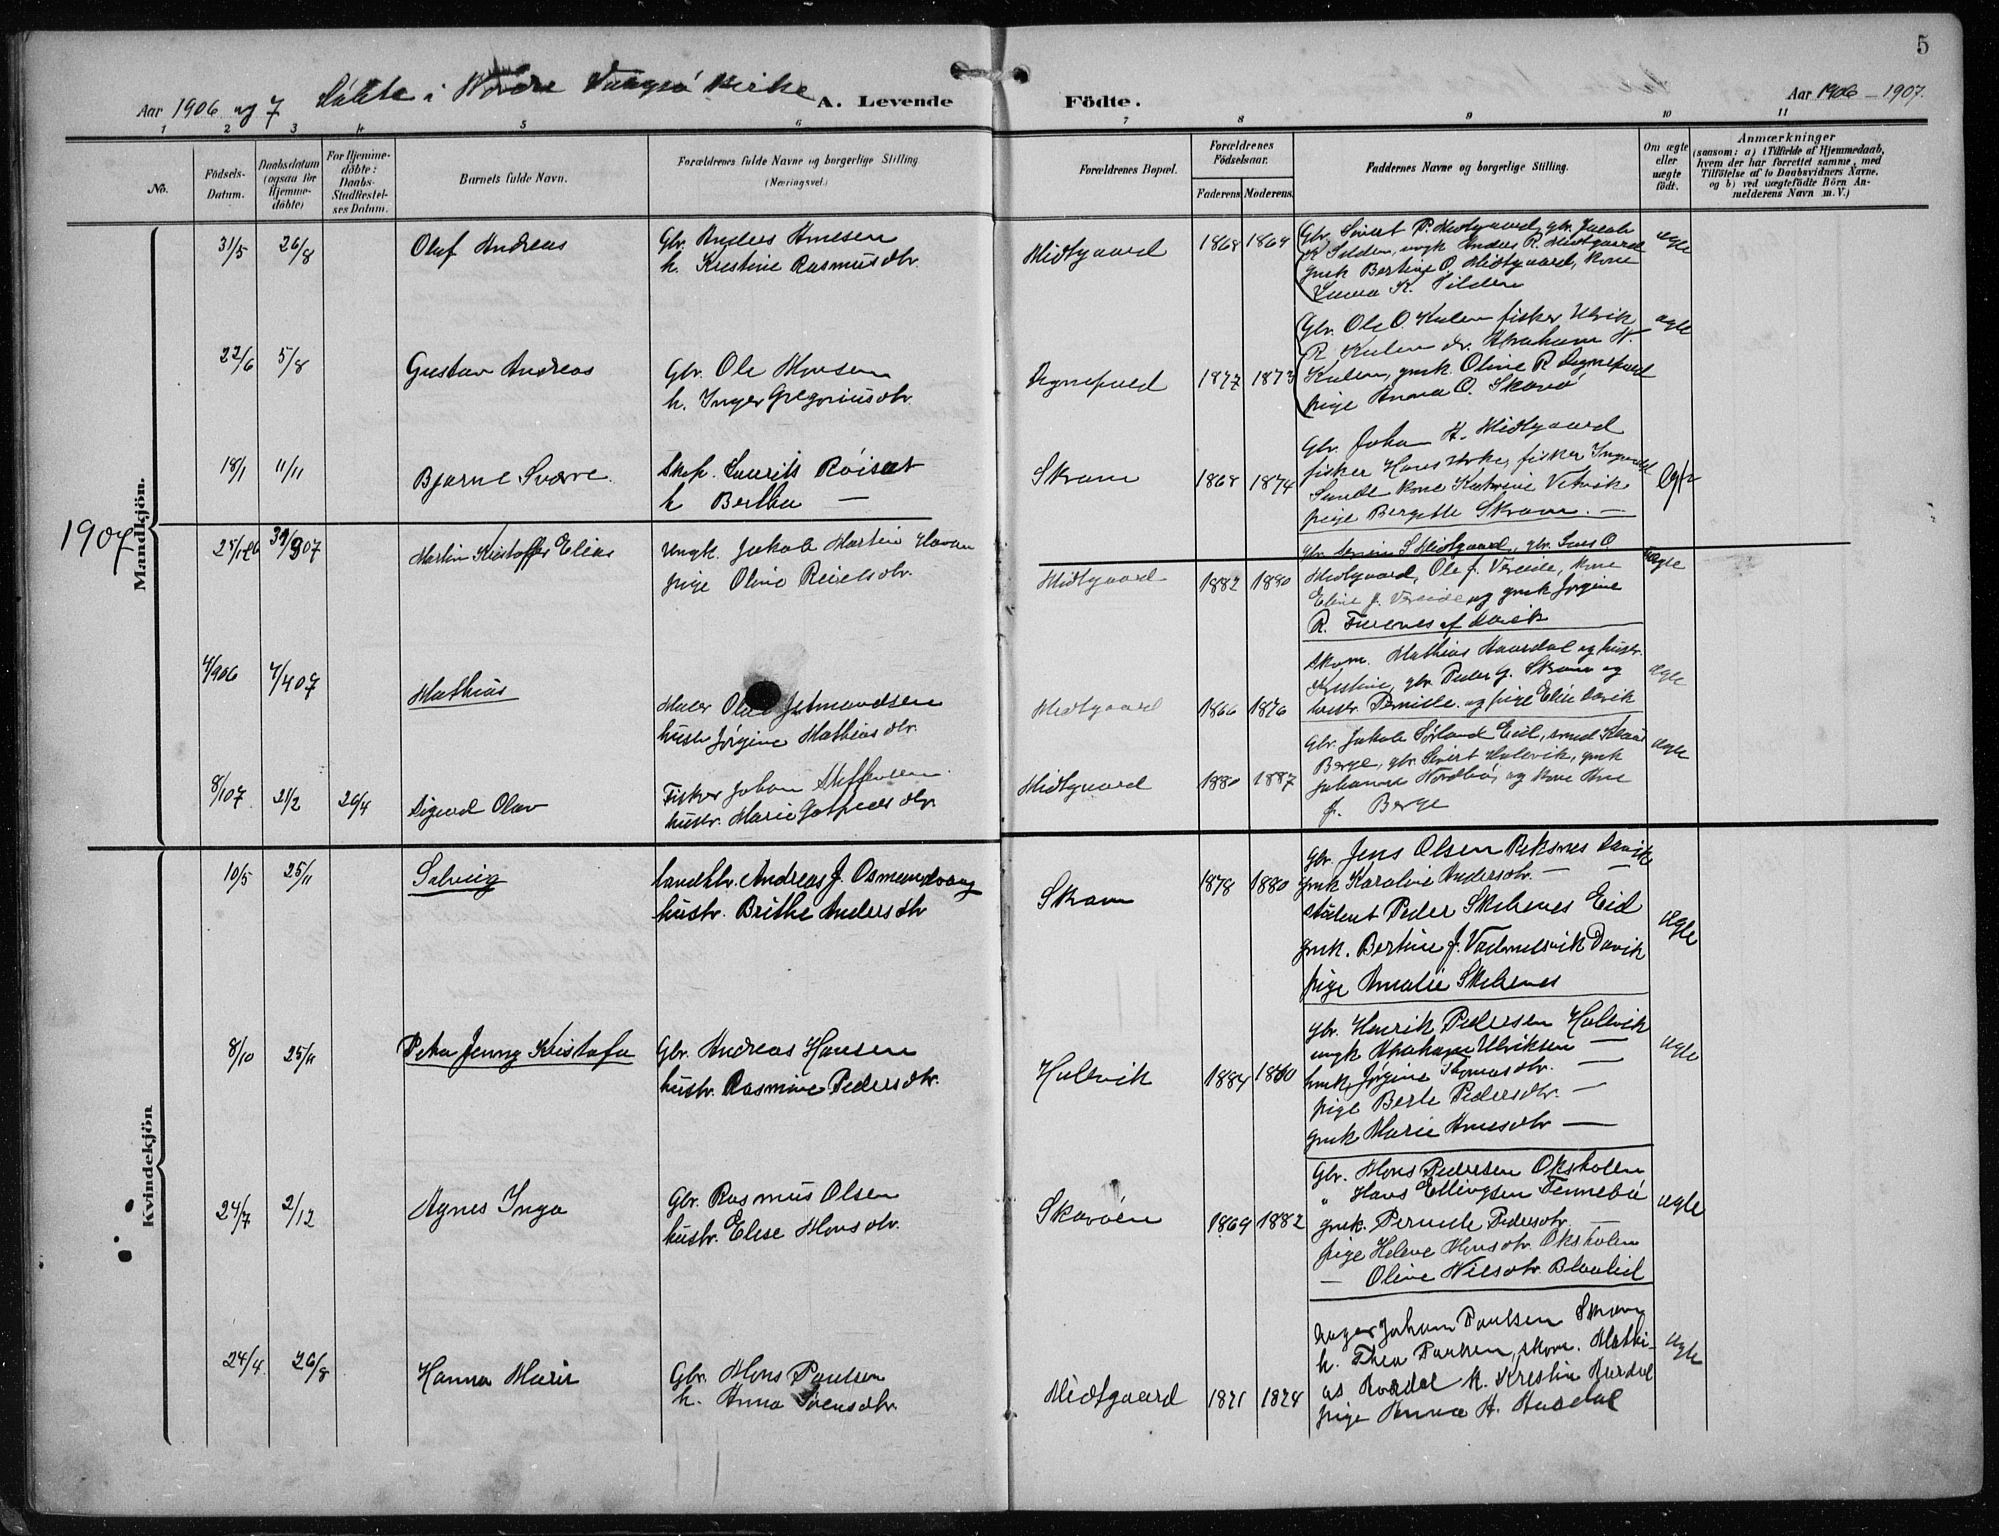 5
Aar 1906 og 7 Døbte i Nordre Vaagsø Kirke
A. Levende Födte.
Aar 1906-1907.
1 2 3 4 5 6 7 8 9 10 11
No.
Födsels-Datum.
Daabsdatum (ogsaa for Hjemme-döbte)
For Hjemme-döbte: Daabs-Stadfæstel-ses Datum.
Barnets fulde Navn.
Forældrenes fulde Navne og borgerlige Stilling (Næringsvei.)
Forældrenes Bopæl.
Forældrenes Födselsaar.
Faderens. Moderens.
Faddernes Navne og borgerlige Stilling.
Om ægte eller uægte födt.
Anmærkninger
(saasom: a) i Tilfælde af Hjemmedaab, hvem der har forrettet samme, med Tilföielse af to Daabsvidners Navne, og b) ved uægtefödte Börn An-melderens Navn m. V.)
Mandkjön.
31/5 26/8 Olaf Andreas
Gbr. Anders Amesen
h. Kristine Rasmusdtr.
Midtgaard 1868 1869
Gbr. Sivert P. Midtgaard, gbr. Jacob
K. Silden, ungk Anders R. Midtgaard
gmk Bertine O. Midtgaard, kone
K. Silden
ægte
22/6 5/8 Gustav Andreas
Gbr. Ole Monsen
h. Inger Gregoriusdtr.
Degnepold 1877 1873
Gbr. Ole O. Kulen fisker Ulrik
R. Kulen dr. Abraham H.
Kulen, gmk. Oline R. Degnepold
pige Anna O. Skavø
ægte
18/1 11/11 Bjarne Sverre.
Skp. Laurits Röiset
h Bertha —
Skram 1868 1874
Gbr. Johan A. Midtgaard
fisker Hans, fisker Ingvald
Sunde kone Kathrine Vetvik
pige Bergitte Skram. —
1907
Martin Kristoffer Elias
Ungk. Jakob Martin
pige Oline Reielsdtr.
Midtgaard 1882 1890
gbr. S Midtgaard, gbr. O.
Midtgaard, Ole J. Vereide, kone
Eline J. Vereide og gmk Jørgine
R. Furenes af Davik
uægte
4/906 7/407 Mathias
Maler Olai Jetmundsen
hustr Jørgine Mathiasdtr.
Midtgaard 1866 1876
Skom. Mathias Aardal og hustr.
Kristine, gbr. Peder J. Skram og
hustr. Pernille og pige Elie Davik
ægte
8/107 21/2 26/4 Sigurd Olav
Fisker Johan Steffensen
hustr. Marie Gotfredsdtr.
Midtgaard 1880 1887
Gbr. Jakob Sørland Eid, smed Klaus
Berge, gbr Sivert Halvik, gmk
Johanne Nordbø, og kone Ane
J. Berge
ægte
Kvindekjön
10/5 25/11 Solveig
Landhdlr. Andreas J. Osmundvaag
hustr. Brithe Andersdtr
Skram 1878 1880
Gbr. Jens Olsen Reksnes Davik
gmk Karoline Andersdtr. — —
student Peder Skibenes Eid
gmk. Bertine J. Davik
pige Amalie Skibenes
ægte
8/10 25/11 Petra Jenny Kristofa
Gbr. Andreas Hansen
hustr. Rasmine Pedersdtr.
Halvik 1884 1880
Gbr. Henrik Pedersen Halvik
ungk Abraham Ulriksen —
gmk. Jørgine Thomasdtr. —
pige Berte Pedersdtr. —
gmk Marie Amesdtr —
ægte
24/7 2/12 Agnes Inga
Gbr. Rasmus Olsen
hustr. Elise Monsdtr.
Skavöen 1869 1882
Gbr. Mons Pedersen Oksholen
" Hans Ellingsen Tennebö
gmk. Pernille Pedersdtr. —
pige Helene Monsdtr. Oksholen
— Oline Nilsdtr. Blaalid
ægte
24/4 26/8 Hanna Marie
Gbr. Mons Paulsen
h. Anna Sörensdtr.
Midtgaard 1871 1874
Johan Paulsen Skram
h. Thea Paulsen, skom. Mathi-
as Aardal h. Kristine Aardal
pige Anna A. Aardal
ægte